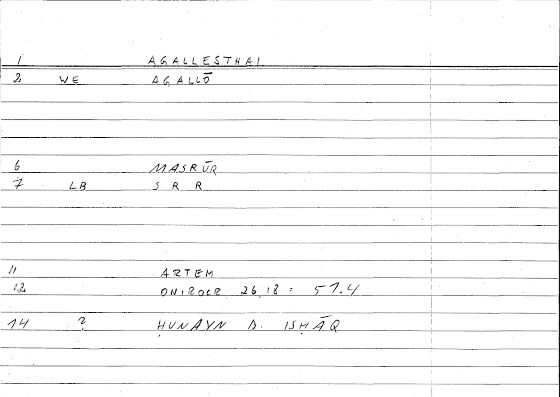 1 AGALLESTHAI
2 WE AGALLŌ
6 MASRŪR
7 LB S R R
11 ARTEM
12 ONIROCR 26,18 : 51.4
14 ? ḤUNAYN B. ISḤĀQ